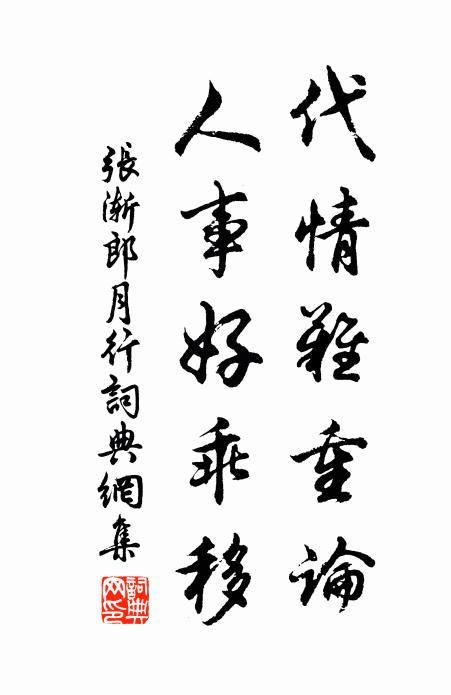 代情難重論
人事好乖移
張漸郎月行詞典網集
詞典網印